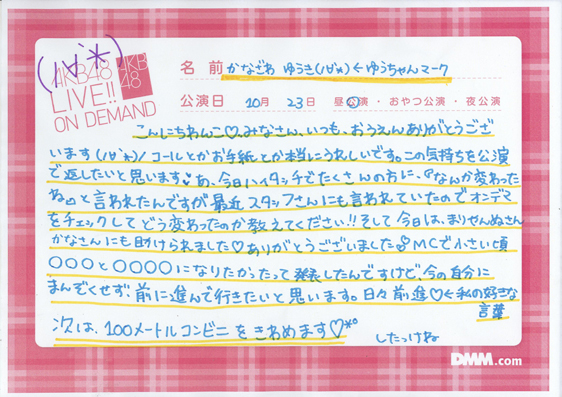 (ハ'∀'*)
AKB48
LIVE!!
ON DEMAND
AKB
48
名前 かなざわ ゆうき(ハ'∀'*)←ゆうちゃんマーク
公演日 10月 23日 昼公演・おやつ公演・夜公演
こんにちわんこ♡、みなさん、いつも、おうえんありがとうござ
います(ハ'∀'*)/ コールとかお手紙とか本当にうれしいです。この気持ちを公演
で返したいと思います♪ あ、今日ハイタッチでたくさんの方に、『なんか変わった
ね』と言われたんですが最近スタッフさんにも言われていたのでオンデマ
をチェックしてどう変わったのか教えてください!! そして今日は、まりやんぬさん
かなさんにも助けられました♡ありがとうございました♪ MCで小さい頃
○○○と○○○○になりたかったって発表したんですけど、今の自分に
まんぞくせず前に進んで行きたいと思います。日々前進♡←私の好きな
言葉
次は、100メートルコンビニをきわめます♡*°
したっけね
DMM.com